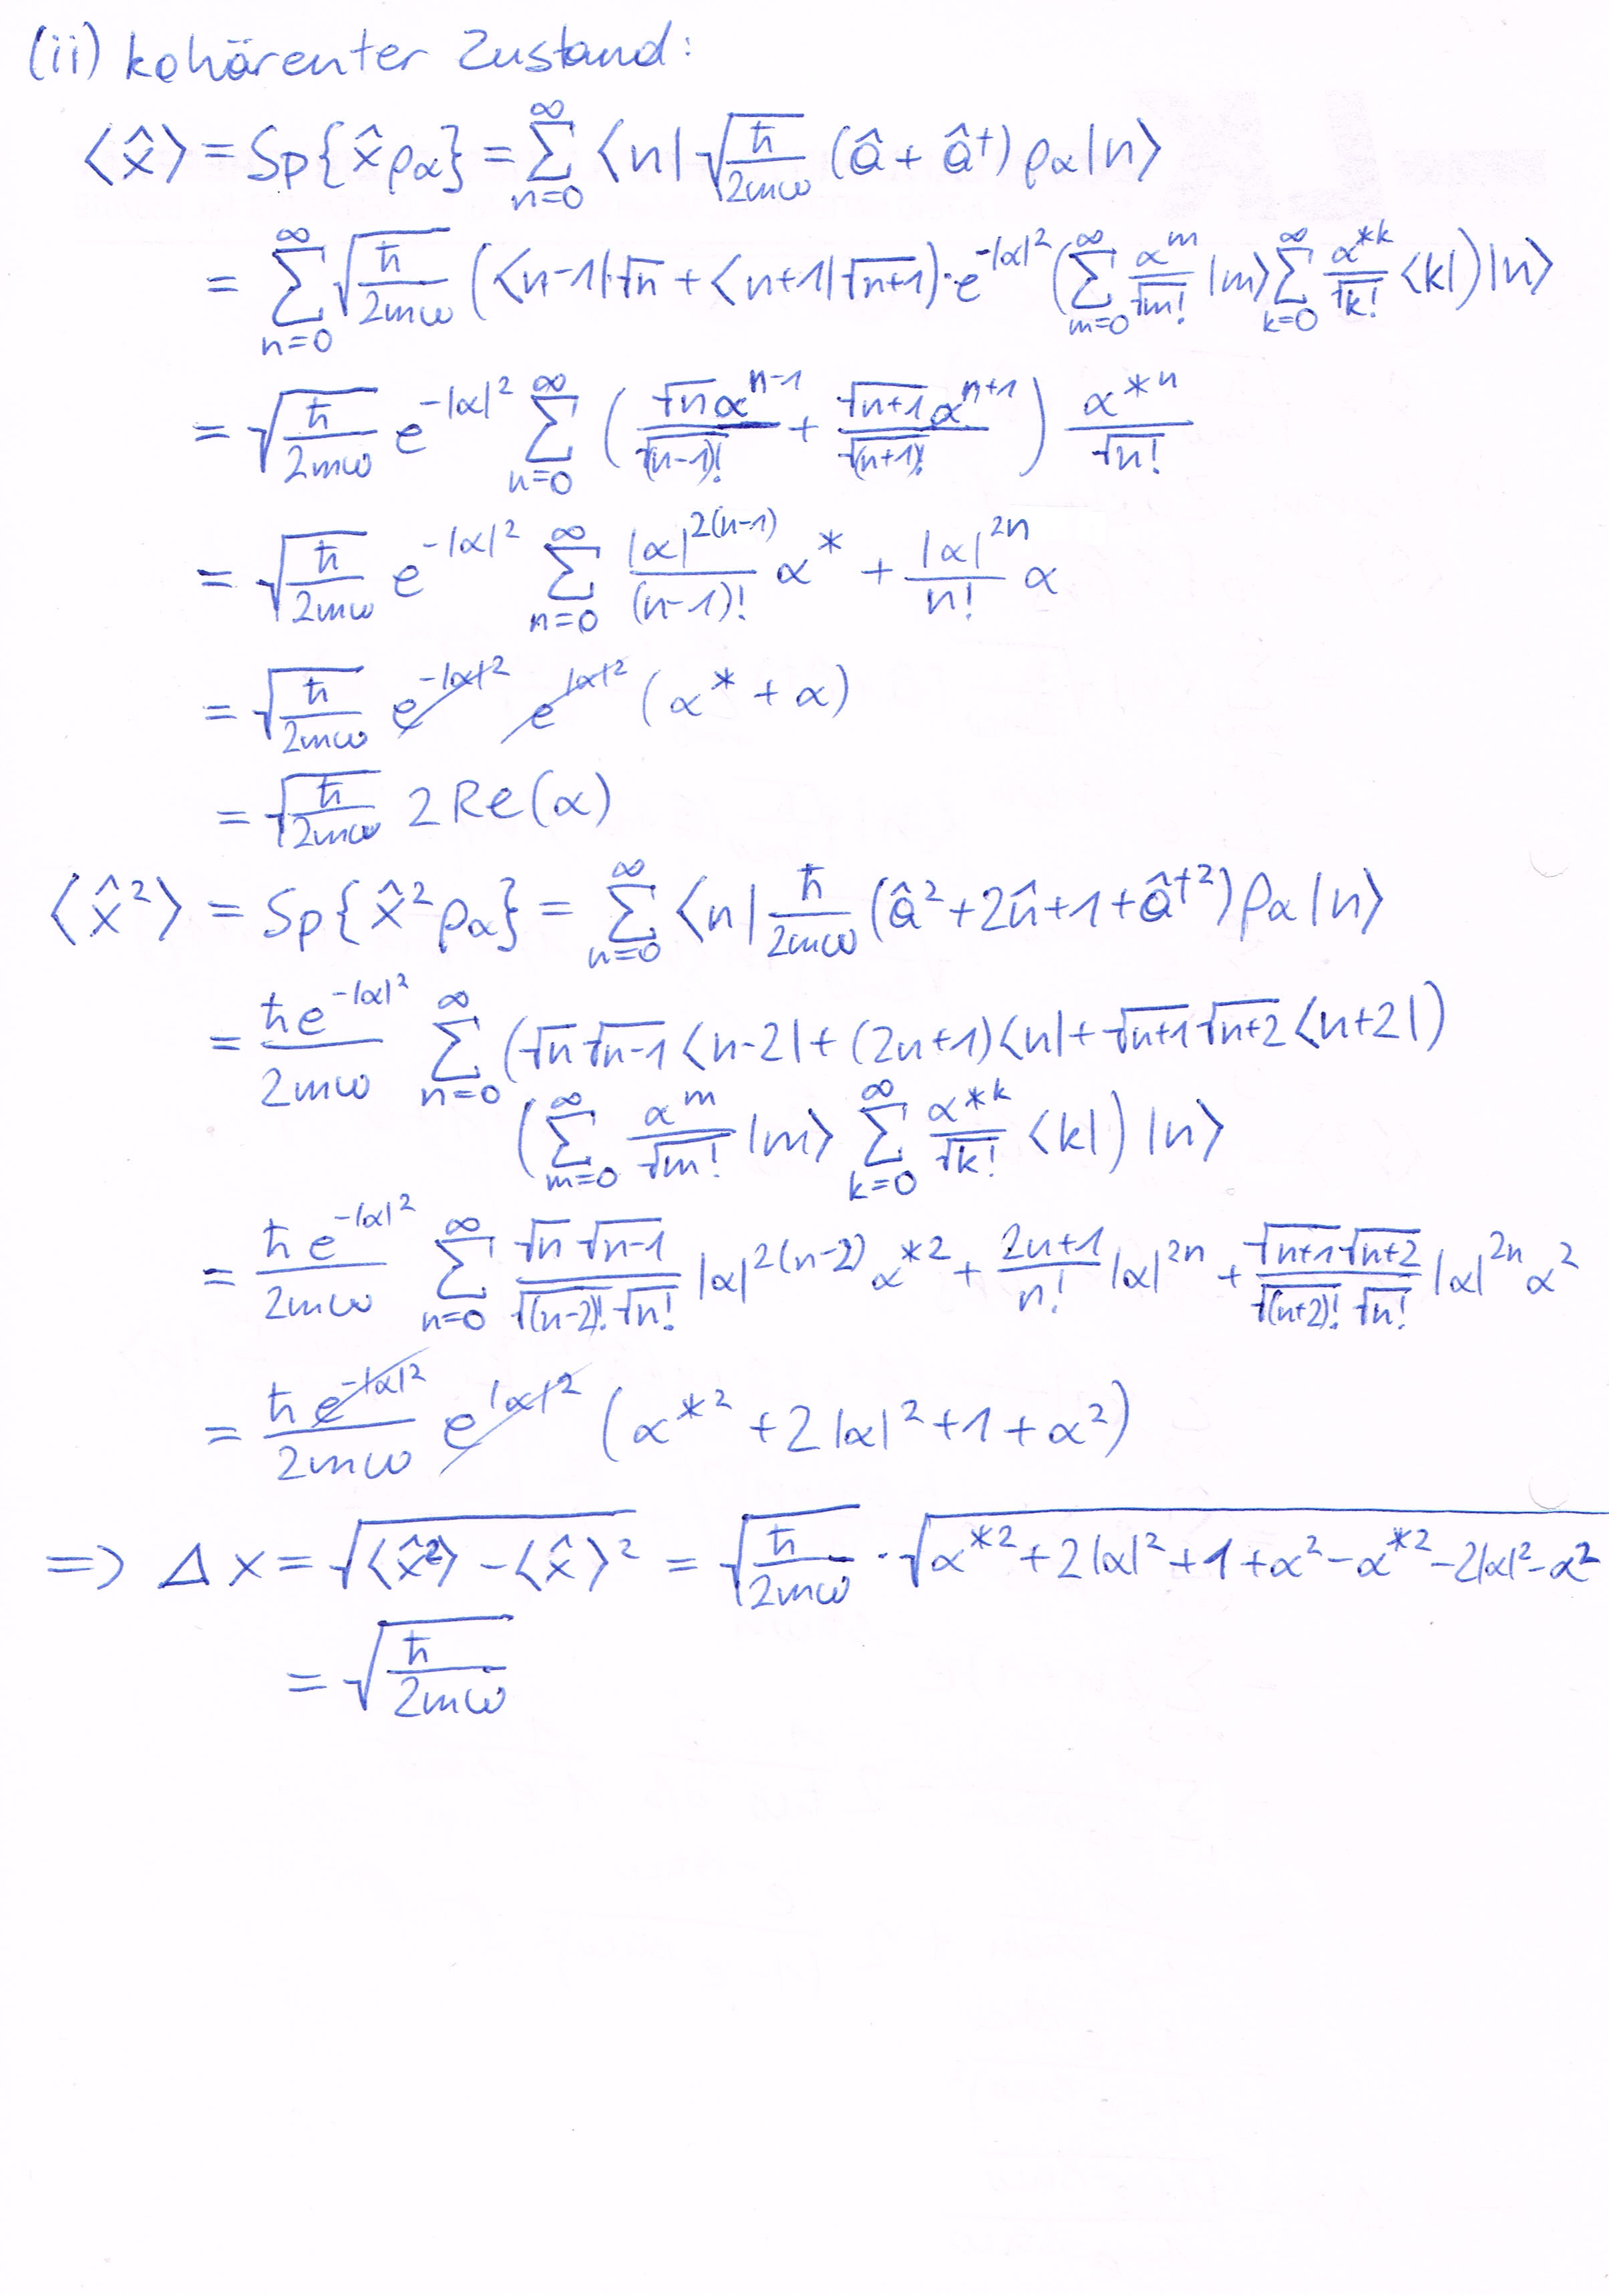 (ii) kohärenter Zustand:
⟨x̂⟩ = Sp{x̂ρ_α} = ∑_{n=0}^{∞} ⟨n| √(ħ/(2mω)) (â + â†) ρ_α |n⟩
= ∑_{n=0}^{∞} √(ħ/(2mω)) (⟨n-1|√n + ⟨n+1|√(n+1)) · e^{-|α|²} (∑_{m=0}^{∞} α^m/√(m!) |m⟩ ∑_{k=0}^{∞} α^{*k}/√(k!) ⟨k|) |n⟩
= √(ħ/(2mω)) e^{-|α|²} ∑_{n=0}^{∞} (√n α^{n-1}/√((n-1)!) + √(n+1) α^{n+1}/√((n+1)!)) α^{*n}/√(n!)
= √(ħ/(2mω)) e^{-|α|²} ∑_{n=0}^{∞} |α|^{2(n-1)}/(n-1)! α^* + |α|^{2n}/n! α
= √(ħ/(2mω)) e^{-|α|²} e^{|α|²} (α^* + α)
= √(ħ/(2mω)) 2 Re(α)
⟨x̂²⟩ = Sp{x̂²ρ_α} = ∑_{n=0}^{∞} ⟨n| ħ/(2mω) (â² + 2n̂ + 1 + â†²) ρ_α |n⟩
= ħe^{-|α|²}/(2mω) ∑_{n=0}^{∞} (√n √(n-1) ⟨n-2| + (2n+1)⟨n| + √(n+1) √(n+2) ⟨n+2|)
(∑_{m=0}^{∞} α^m/√(m!) |m⟩ ∑_{k=0}^{∞} α^{*k}/√(k!) ⟨k|) |n⟩
= ħe^{-|α|²}/(2mω) ∑_{n=0}^{∞} √n √(n-1)/(√((n-2)!) √(n!)) |α|^{2(n-2)} α^{*2} + (2n+1)/n! |α|^{2n} + √(n+1) √(n+2)/(√((n+2)!) √(n!)) |α|^{2n} α²
= ħe^{-|α|²}/(2mω) e^{|α|²} (α^{*2} + 2|α|² + 1 + α²)
=> Δx = √(⟨x̂²⟩ - ⟨x̂⟩²) = √(ħ/(2mω)) · √(α^{*2} + 2|α|² + 1 + α² - α^{*2} - 2|α|² - α²)
= √(ħ/(2mω))